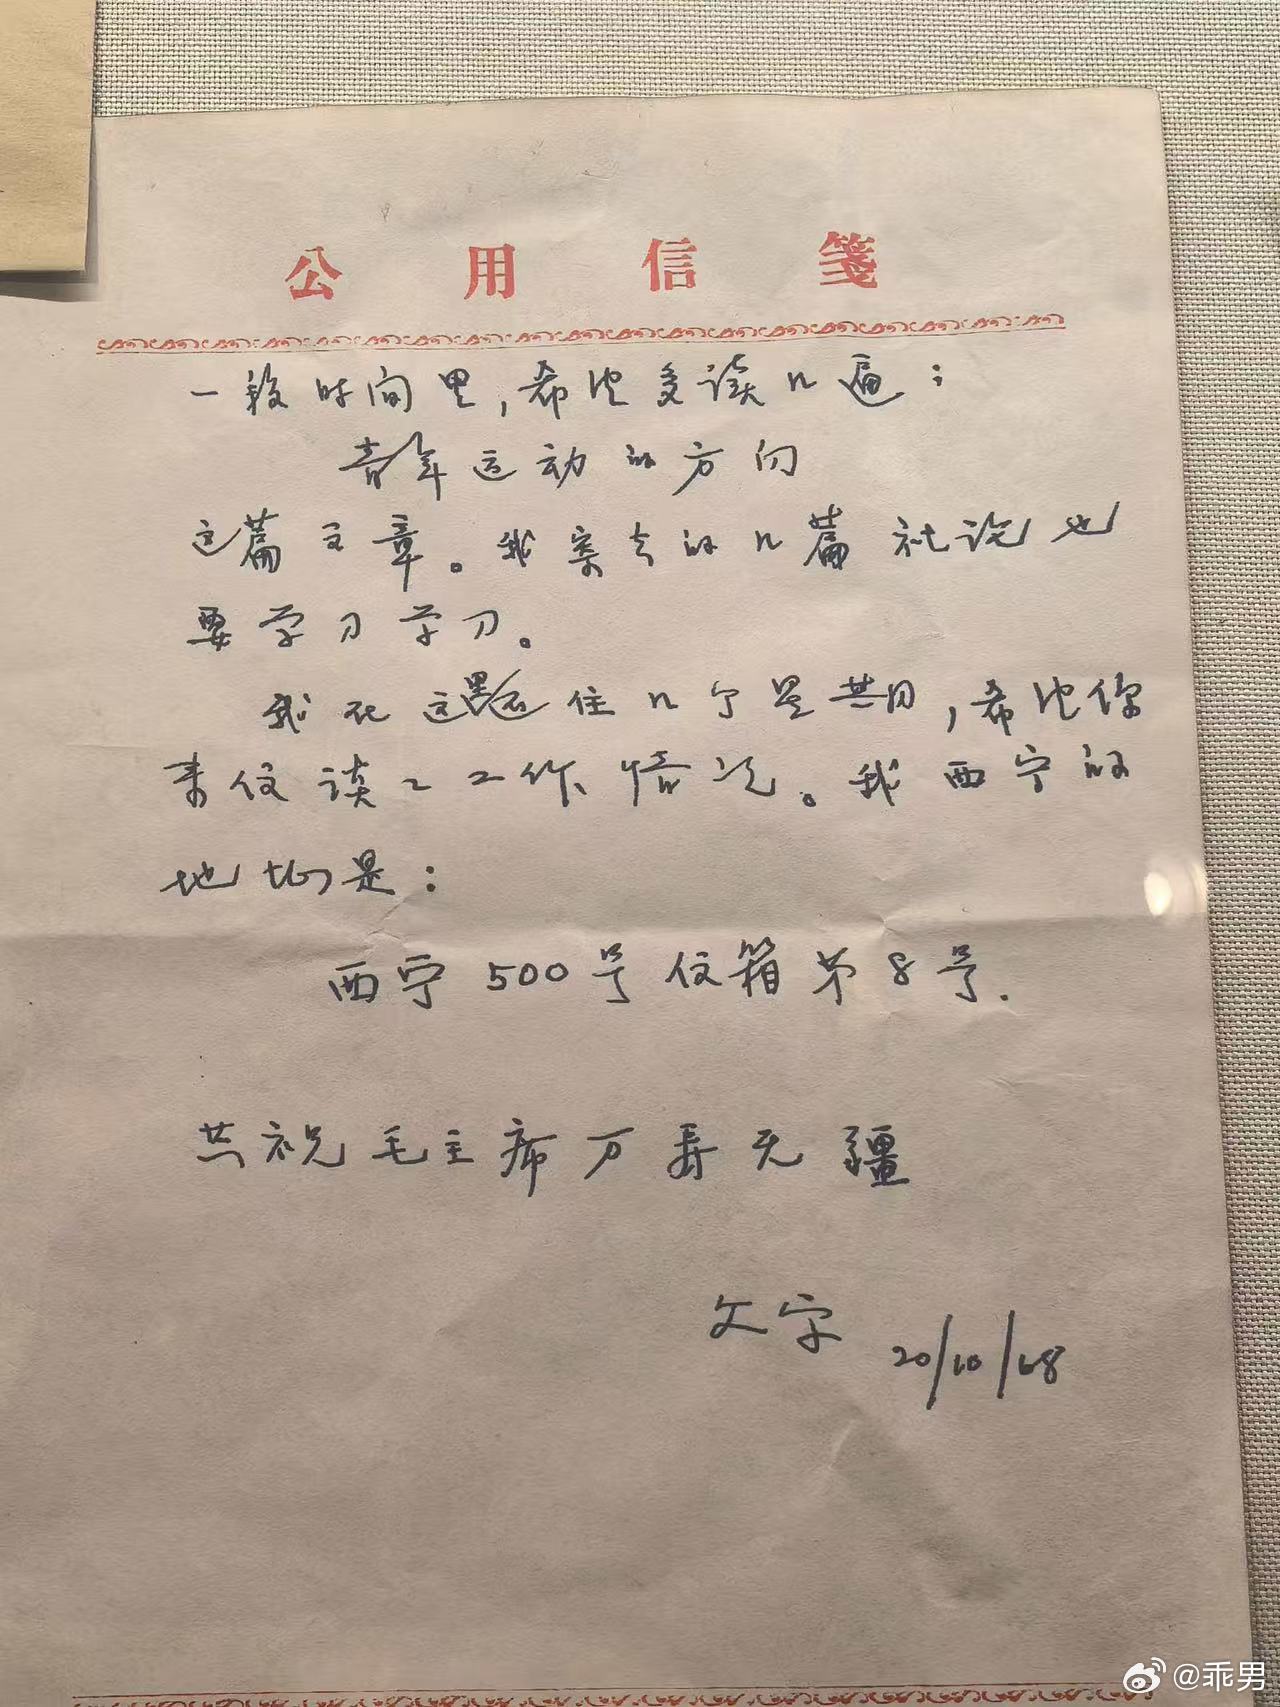 公用信笺
一段时间里,希望多读几遍:
青年运动的方向
这篇文章。我寄去的几篇社论也
要学习学习。
我在这里还住几个星期,希望你
来信谈谈工作情况。我西宁的
地址是:
西宁500号信箱第8号.
共祝毛主席万寿无疆
文宇 20/10/68
@乖男